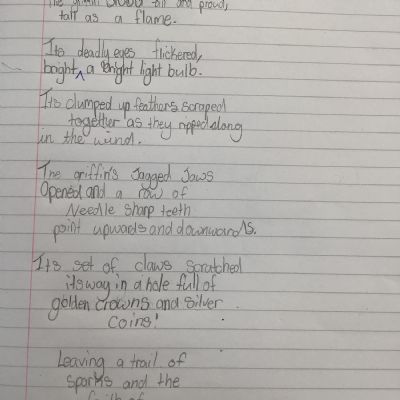 The griffin stood tall and proud,
tall as a flame.
Its deadly eyes flickered,
bright ^ a bright light bulb.
Its clumped up feathers scraped
together as they ripped along
in the wind.
The griffin's Jagged Jaws
Opened and a row of
Needle sharp teeth
point upwards and downwards.
Its set of claws scratched
its way in a hole full of
golden crowns and silver
Coins!
Leaving a trail of
sparks and the